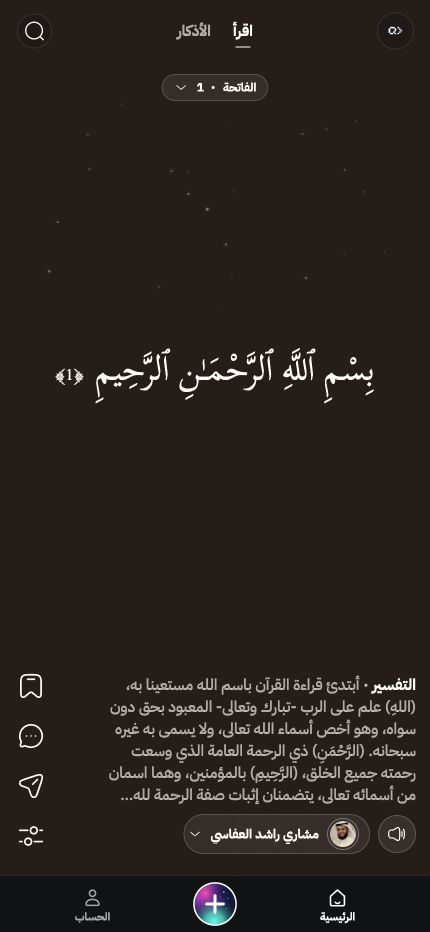 اقرأ
الأذكار
الفاتحة • 1
بِسْمِ ٱللَّهِ ٱلرَّحْمَـٰنِ ٱلرَّحِيمِ ﴿1﴾
التفسير • أبتدئ قراءة القرآن باسم الله مستعينا به،
(اللهِ) علم على الرب -تبارك وتعالى- المعبود بحق دون
سواه، وهو أخص أسماء الله تعالى، ولا يسمى به غيره
سبحانه. (الرَّحْمَنِ) ذي الرحمة العامة الذي وسعت
رحمته جميع الخلق، (الرَّحِيمِ) بالمؤمنين، وهما اسمان
من أسمائه تعالى، يتضمنان إثبات صفة الرحمة لله...
مشاري راشد العفاسي
الرئيسية
الحساب